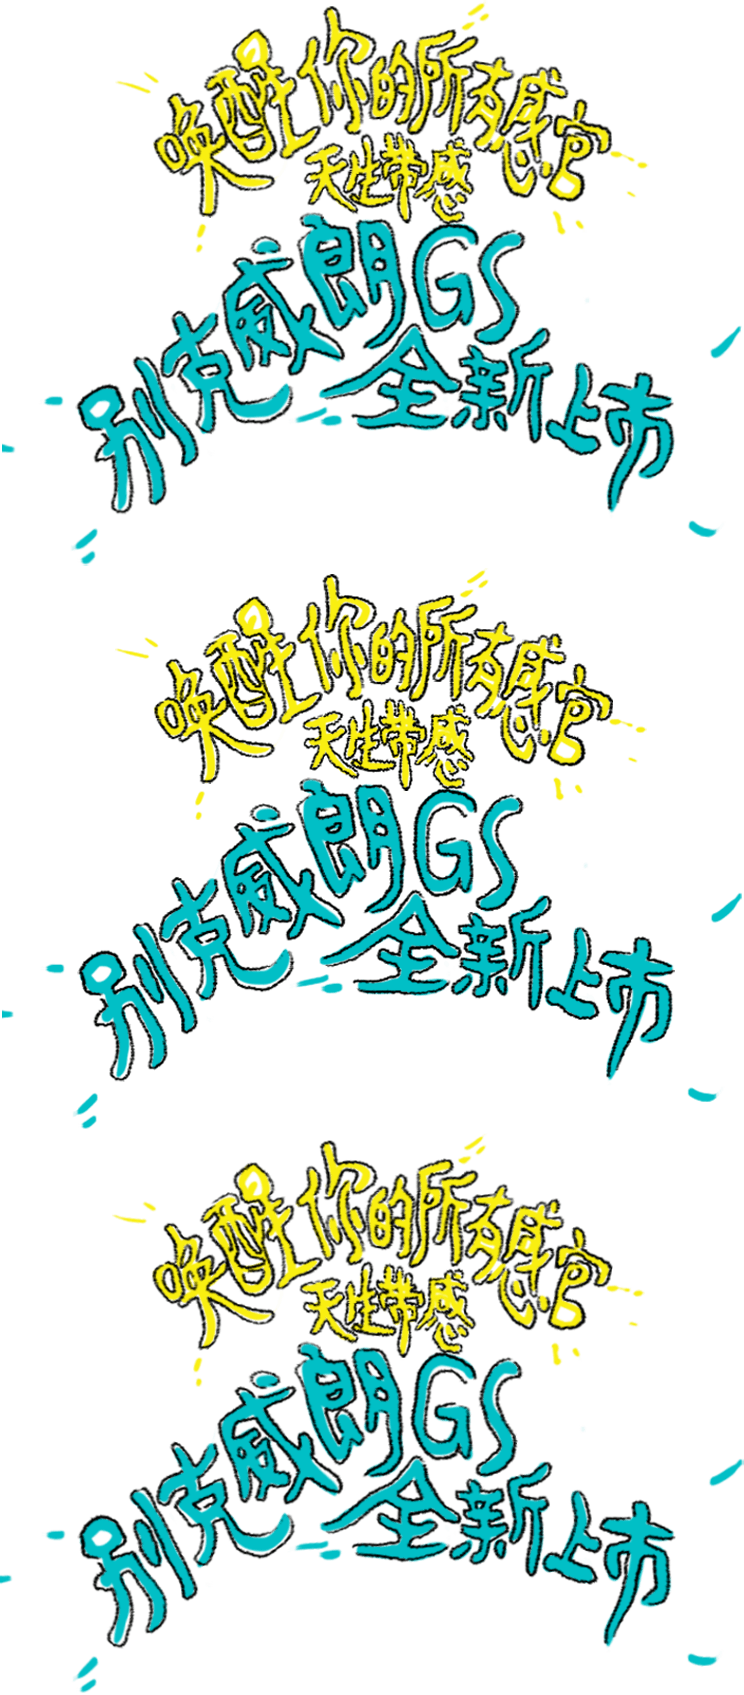 唤醒你的所有感官
天生带感
别克威朗GS
全新上市
唤醒你的所有感官
天生带感
别克威朗GS
全新上市
唤醒你的所有感官
天生带感
别克威朗GS
全新上市